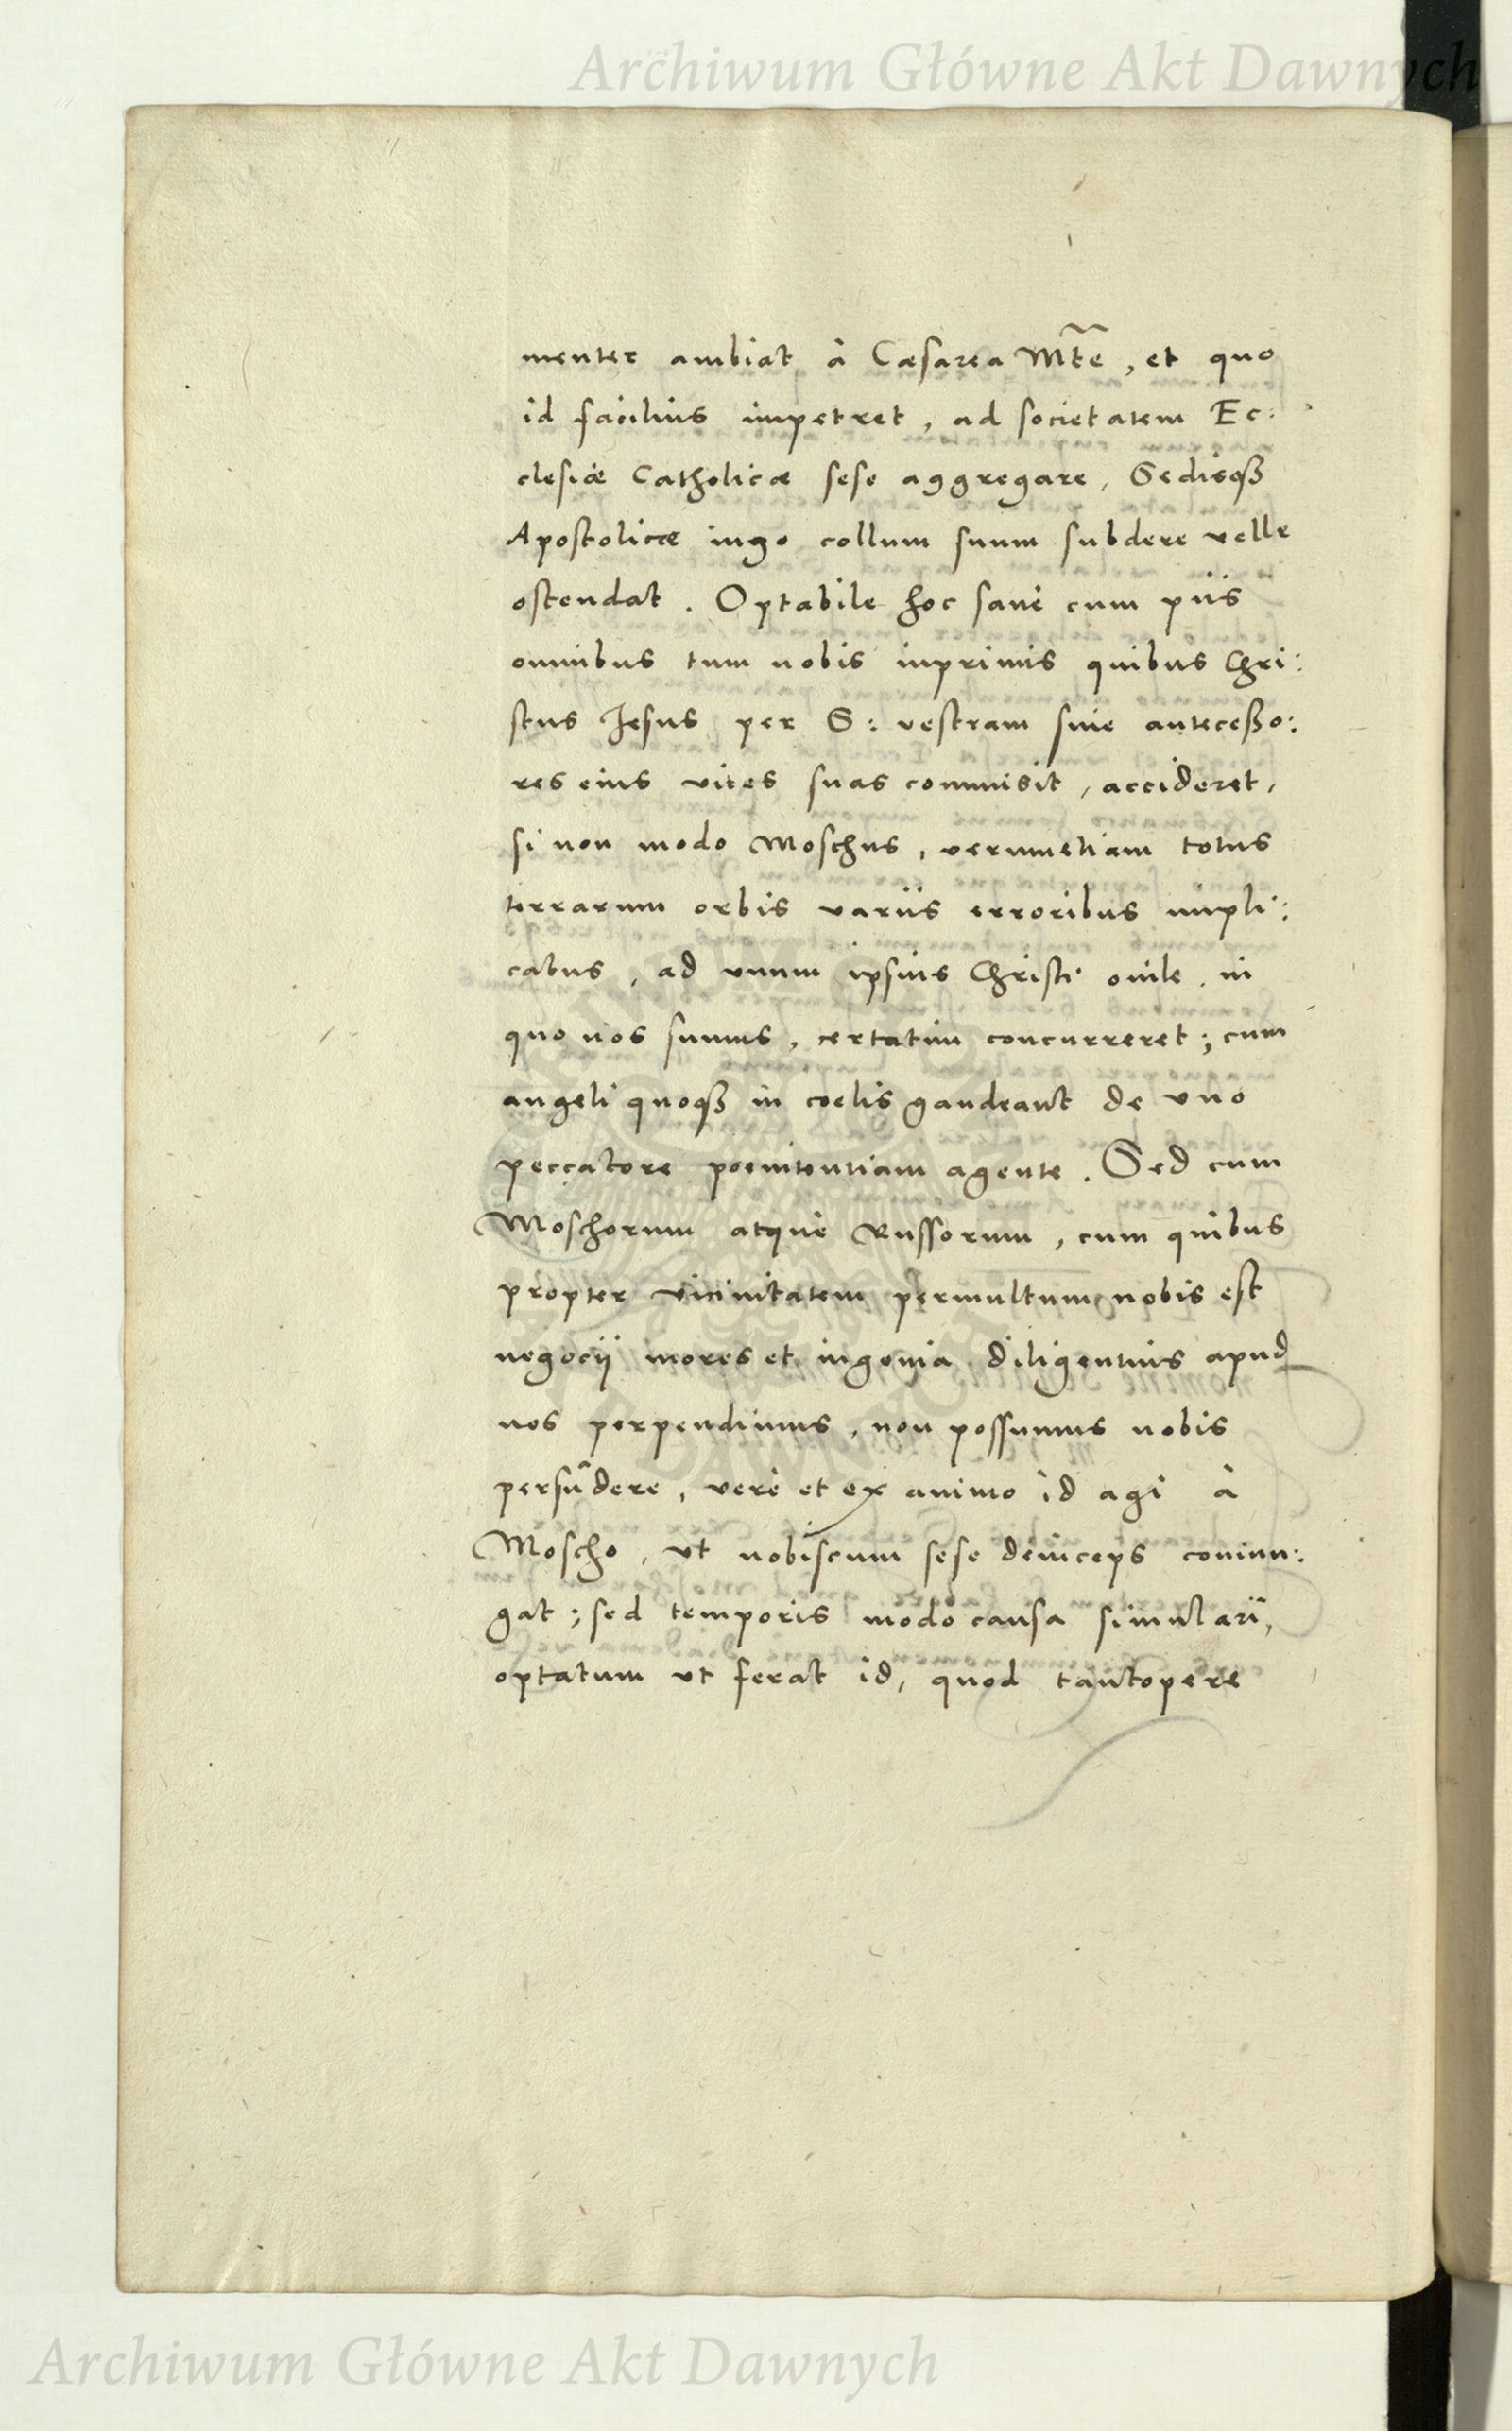 Archiwum Główne Akt Dawnych
menter ambiat à Cæsarea Mt̃e, et quo
id facilius impetret, ad societatem Ec:
clesiæ Catholicæ sese aggregare, Sedisqꝫ
Apostolicæ iugo collum suum subdere velle
ostendat. Optabile hoc sanè cum piis
omnibus tum nobis inprimis quibus Chri:
stus Jesus per S: vestram siue antecesso:
res eius vices suas commisit, accideret,
si non modo Moschus, verumetiam totus
terrarum orbis variis erroribus impli:
catus, ad vnum ipsius Christi ouile, in
quo nos sumus, certatim concurreret; cum
angeli quoqꝫ in coelis gaudeant de vno
peccatore poenitentiam agente. Sed cum
Moschorum atque Russorum, cum quibus
propter vicinitatem permultum nobis est
negocij mores et ingenia diligentius apud
nos perpendimus, non possumus nobis
persũdere, verè et ex animo id agi à
Moscho, vt nobiscum sese deinceps coniun:
gat; sed temporis modo causa simulari,
optatum vt ferat id, quod tantopere
Archiwum Główne Akt Dawnych